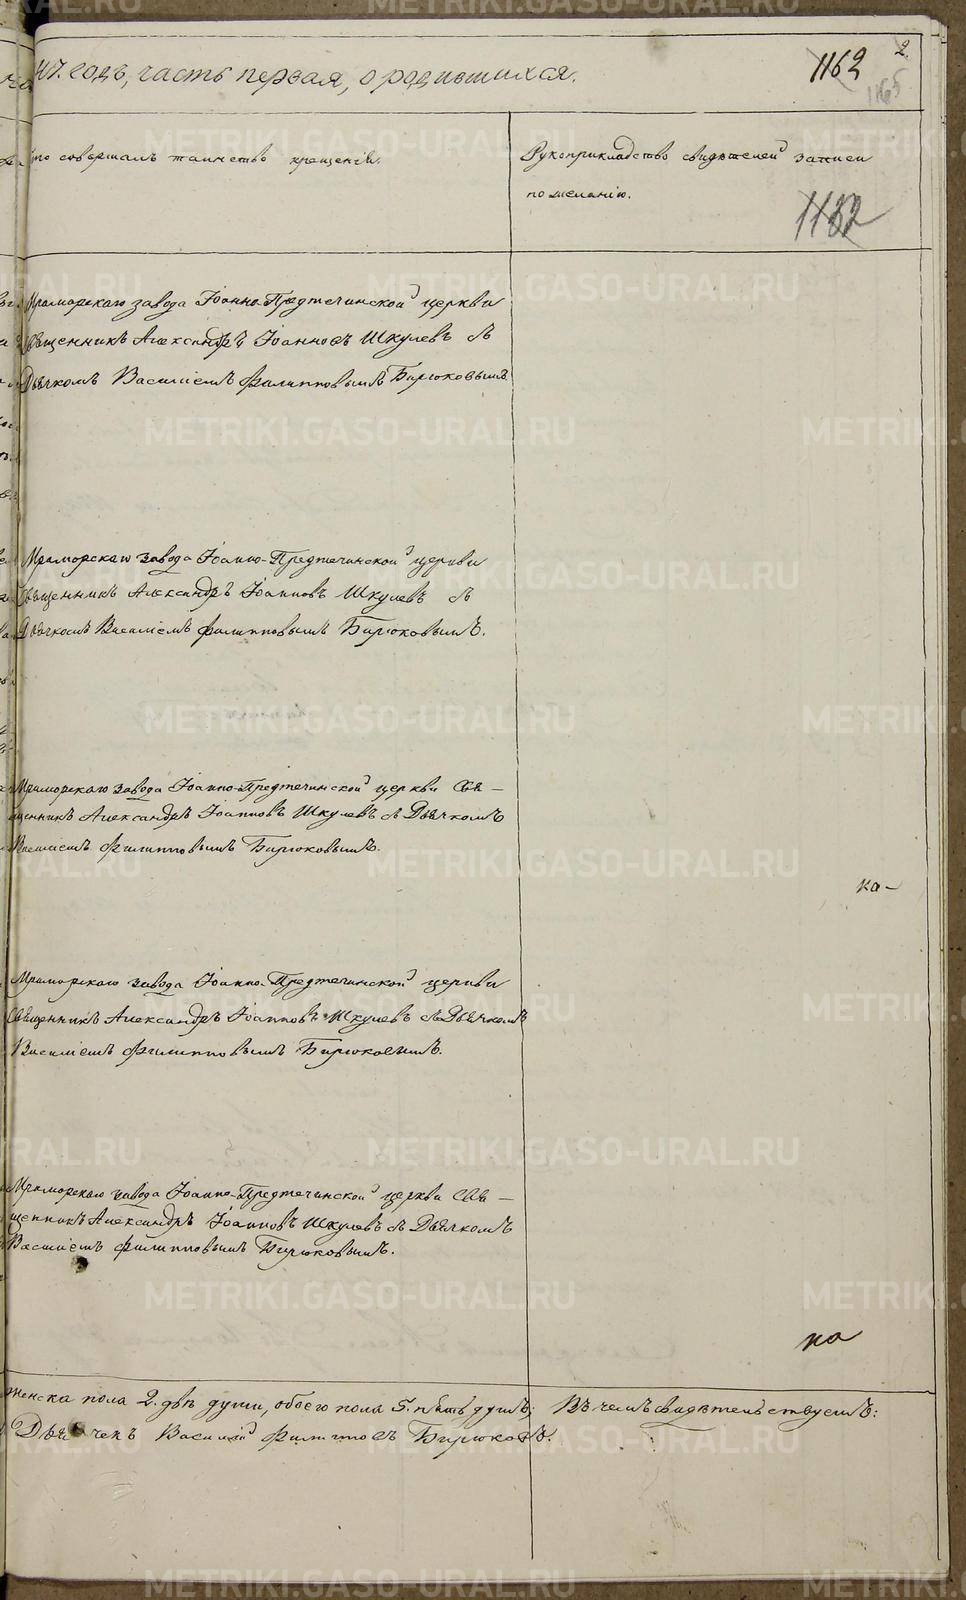 47. годъ, часть первая, о родившихся.
1162
2.
1165
кто совершалъ таинство крещенія.
Рукоприкладство свидѣтелей записи
по желанію.
1132
Мраморскаго завода Іоанно-Предтечинской церкви
Священникъ Александръ Іоанновъ Шкулевъ съ
Дьячкомъ Василіемъ Филипповымъ Бирюковымъ
Мраморскаго завода Іоанно-Предтечинской церкви
Священникъ Александръ Іоанновъ Шкулевъ съ
Дьячкомъ Василіемъ Филипповымъ Бирюковымъ.
Мраморскаго завода Іоанно-Предтечинской церкви Свя-
щенникъ Александръ Іоанновъ Шкулевъ съ Дьячкомъ
Василіемъ Филипповымъ Бирюковымъ.
ка-
Мраморскаго завода Іоанно-Предтечинской церкви
Священникъ Александръ Іоанновъ Шкулевъ съ Дьячкомъ
Василіемъ Филипповымъ Бирюковымъ.
Мраморскаго завода Іоанно-Предтечинской церкви Свя-
щенникъ Александръ Іоанновъ Шкулевъ съ Дьячкомъ
Василіемъ Филипповымъ Бирюковымъ.
на
женска пола 2. двѣ души, обоего пола 5. пять душъ; Въ чемъ свидѣтельствуемъ:
Дьячекъ Василій Филиповъ Бирюковъ.
METRIKI.GASO-URAL.RU